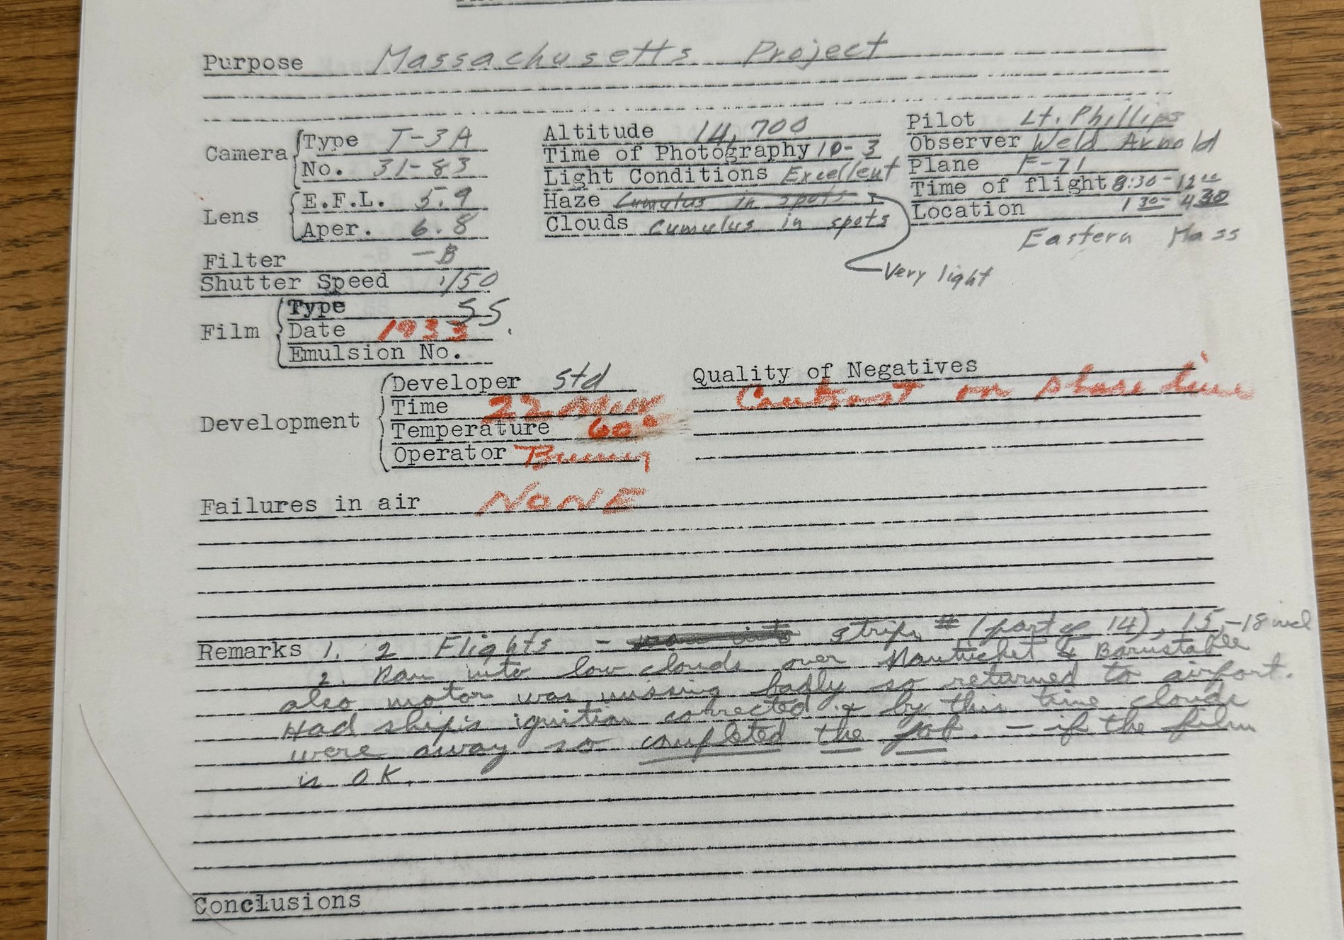 Purpose Massachusetts Project
Camera Type T-3A
No. 31-83
Lens E.F.L. 5.9
Aper. 6.8
Filter -B
Shutter Speed 1/50
Film Type SS
Date 1933
Emulsion No.
Altitude 14,700
Time of Photography 10-3
Light Conditions Excellent
Haze Cumulus in spots
Very light
Clouds Cumulus in spots
Pilot Lt. Phillips
Observer Weld Arnold
Plane F-71
Time of flight 8:30-12 00
1 30 - 4 30
Location
Eastern Mass
Development Developer Std
Time 22 Min
Temperature 60°
Operator
Quality of Negatives
Contrast on shore line
Failures in air NONE
Remarks 1. 2 Flights - strips # (part of 14), 15-18 incl
2. Ran into low clouds over Nantucket & Barnstable
also motor was missing badly so returned to airport.
Had ship's ignition corrected & by this time clouds
were away so completed the job. - if the film
is OK.
Conclusions